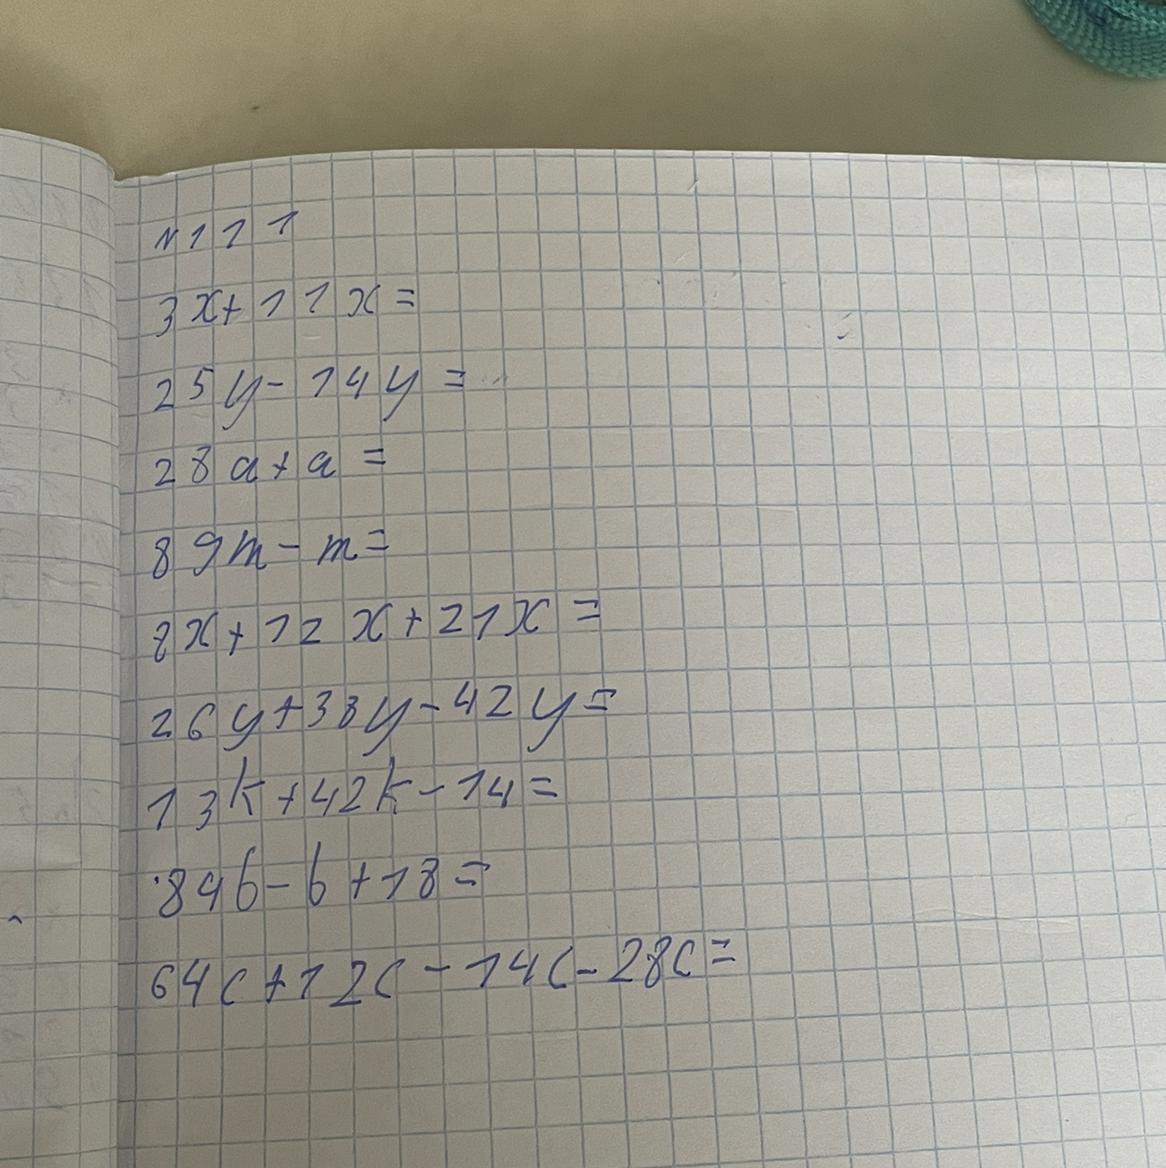 №111
3x+11x=
25y-14y=
28a+a=
89m-m=
8x+12x+21x=
26y+38y-42y=
13k+42k-14=
84b-b+18=
64c+12c-14c-28c=